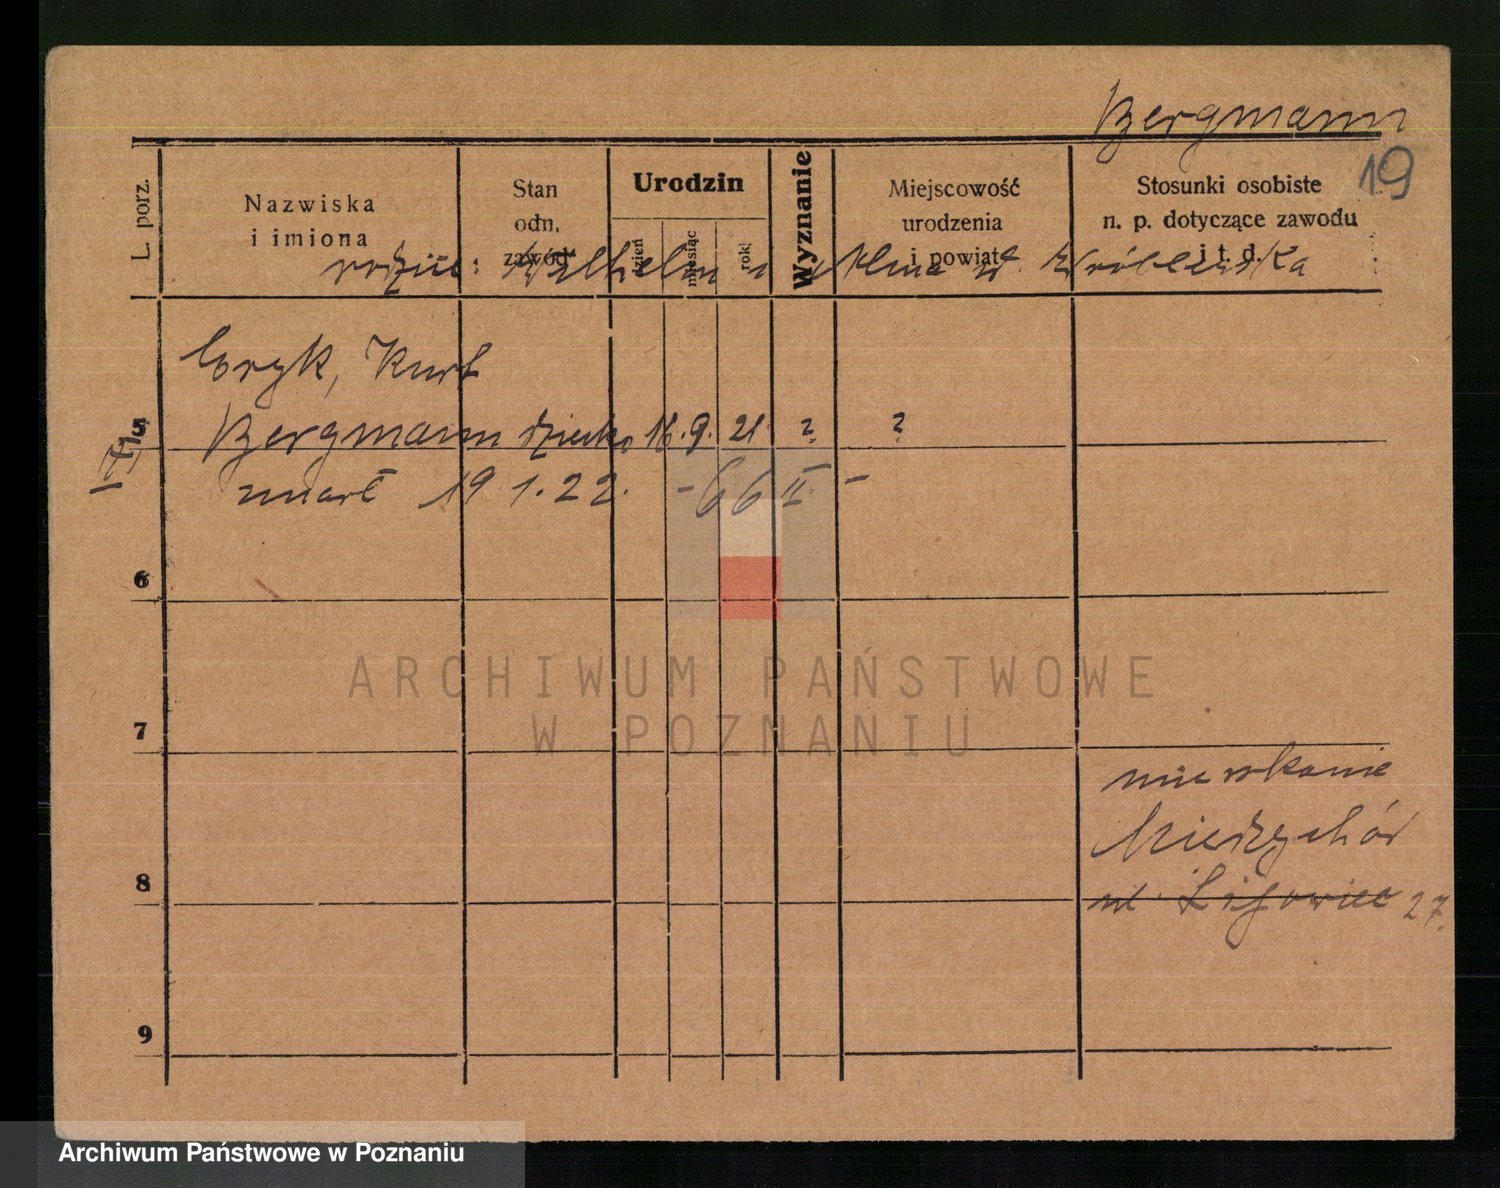 Bergmann
19
L. porz.
Nazwiska
i imiona
Stan
odn.
zawód
Urodzin
dzień
miesiąc
rok
Wyznanie
Miejscowość
urodzenia
i powiat
Stosunki osobiste
n. p. dotyczące zawodu
i t. d.
rodzice: Wilhelm i Alma z. Wróblewska
Eryk, Kurt
5
Bergmann dziecko 16. 9. 21 ? ?
zmarł 19 1. 22. - 66 II -
6
ARCHIWUM PAŃSTWOWE
W POZNANIU
7
mieszkanie
Międzychód
8
ul 27.
9
Archiwum Państwowe w Poznaniu